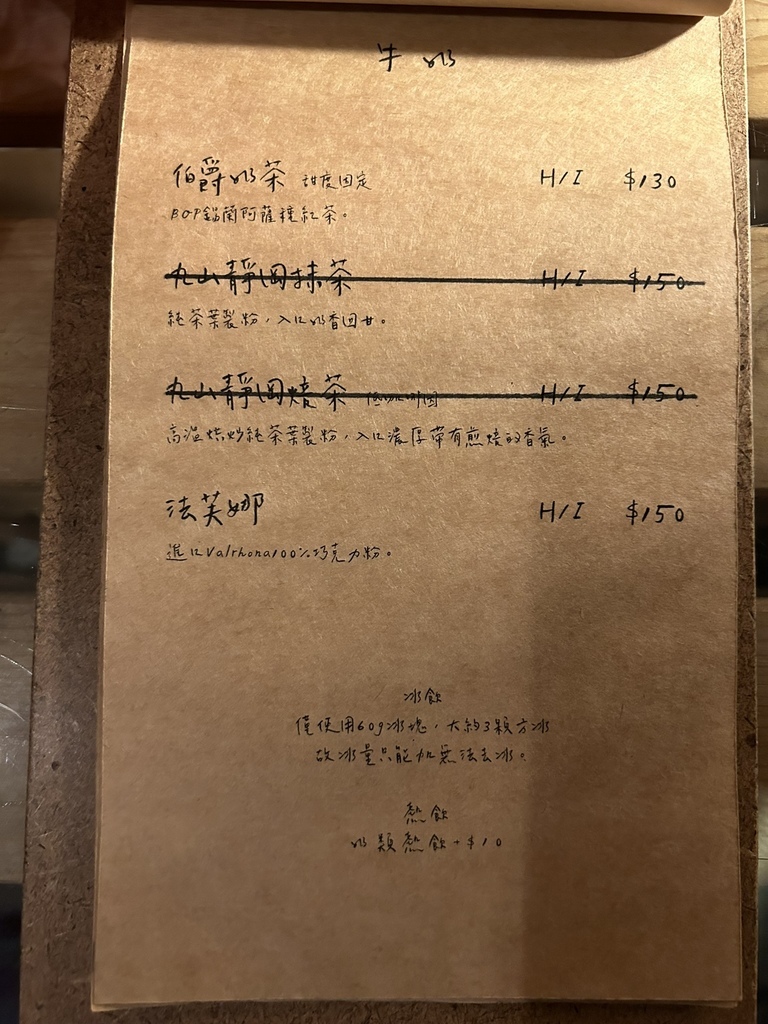 牛奶
伯爵奶茶 甜度固定 H/I $130
BOP錫蘭阿薩姆紅茶。
丸山靜岡抹茶 H/I $150
純茶葉製粉，入口奶香回甘。
丸山靜岡焙茶 低咖啡因 H/I $150
高溫烘炒純茶葉製粉，入口濃厚帶有煎焙的香氣。
法芙娜 H/I $150
進口Valrhona100%巧克力粉。
冰飲
僅使用60g冰塊，大約3顆方冰
故冰量只能加無法去冰。
熱飲
奶類熱飲+$10